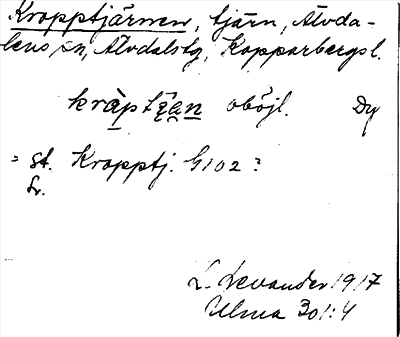 Kropptjärnen, tjärn, Älvda-
lens sn, Älvdalstg, Kopparbergsl.
kràptjǟn oböjl. Dy
= st. Kropptj. G102?
Lr.
L. Levander 1917
Ulma 301:4